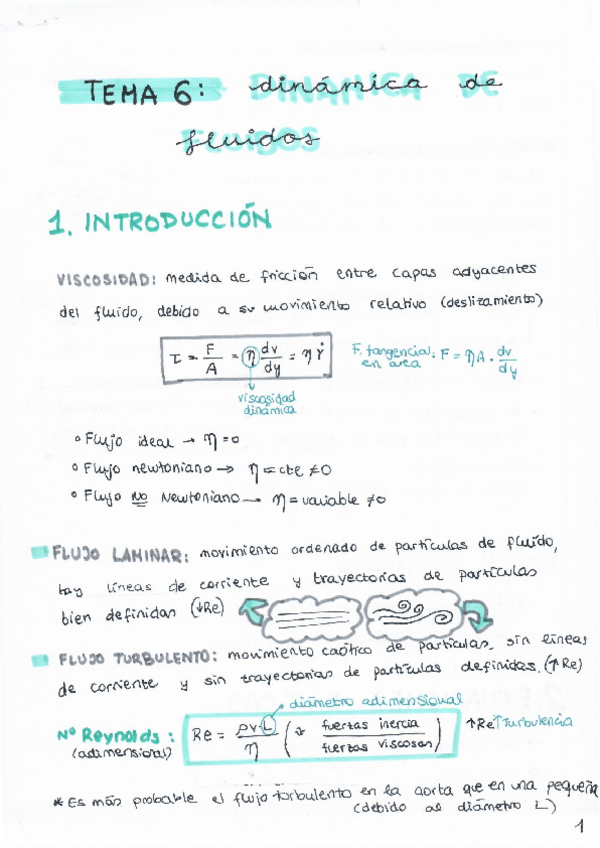 TEMA 6: dinámica de
fluidos
1. INTRODUCCIÓN
VISCOSIDAD: medida de fricción entre capas adyacentes
del fluido, debido a su movimiento relativo (deslizamiento)
τ = F/A = η dv/dy = η γ̇
F. tangencial: F = ηA · dv/dy
en area
viscosidad
dinámica
° Flujo ideal → η = 0
° Flujo newtoniano → η = cte ≠ 0
° Flujo NO Newtoniano → η = variable ≠ 0
FLUJO LAMINAR: movimiento ordenado de partículas de fluido,
hay líneas de corriente y trayectorias de partículas
bien definidas (↓Re)
FLUJO TURBULENTO: movimiento caótico de partículas, sin líneas
de corriente y sin trayectorias de partículas definidas. (↑Re)
diámetro adimensional
Nº Reynolds: Re = ρv·L/η ( fuerzas inercia / fuerzas viscosas ) ↑Re ↑Turbulencia
(adimensional)
* Es más probable el flujo turbulento en la aorta que en una pequeña
(debido al diámetro L)
1